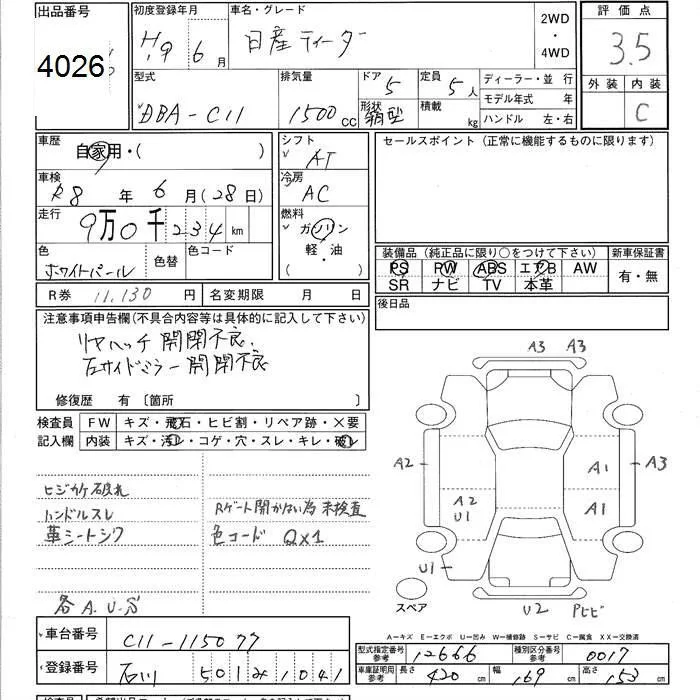 出品番号 初度登録年月 車名・グレード 2WD・4WD 評価点
4026 H.19 6月 日産ティーダ 3.5
型式 排気量 ドア 5 定員 5人 ディーラー・並 行 外装 内装
DBA-C11 1500cc 形状 箱型 積載 kg モデル年式 年 C
ハンドル 左・右
車歴 シフト セールスポイント (正常に機能するものに限ります)
自家用・( ) AT
車検 冷房
R8 年 6 月(28日) AC
走行 燃料
9万0千234km ガソリン
色 色替 色コード 軽・油 装備品 (純正品に限り○をつけて下さい) 新車保証書
ホワイトパール ( ・ ) PS PW ABS エアB AW 有・無
SR ナビ TV 本革
R券 11.130 円 名変期限 月 日 後日品
注意事項申告欄(不具合内容等は具体的に記入して下さい)
リヤハッチ 開閉不良.
左サイドミラー開閉不良
修復歴 有〔箇所 〕
検査員 FW キズ・飛石・ヒビ割・リペア跡・×要
記入欄 内装 キズ・汚レ・コゲ・穴・スレ・キレ・破レ
A3 A3
A2 A1 A3
A2 A1
U1
U1
U2 Pヒビ
スペア
ヒジカケ破れ
ハンドルスレ Rゲート開かない為 未検査
革シートシワ 色コード QX1
各A.U.S
A―キズ E―エクボ U―凹み W―補修跡 S―サビ C―腐食 XX―交換済
車台番号 C11-115077
型式指定番号 参考 12666 種別区分番号 参考 0017
登録番号 石川 501み1041
車庫証明用 参考 長さ 420cm 幅 169cm 高さ 153cm